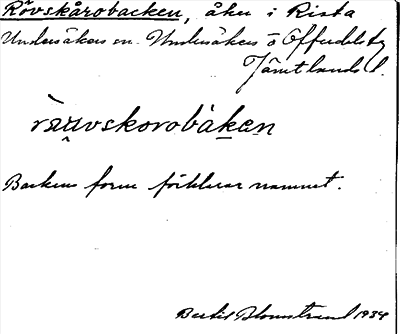 Rövskårobacken, åker i Rista
Undersåkers sn. Undersåkers o Offerdals tg
Jämtlands l.
ràu̯vskorobàken
Backens form förklarar namnet.
Bertil Blomstrand 1934